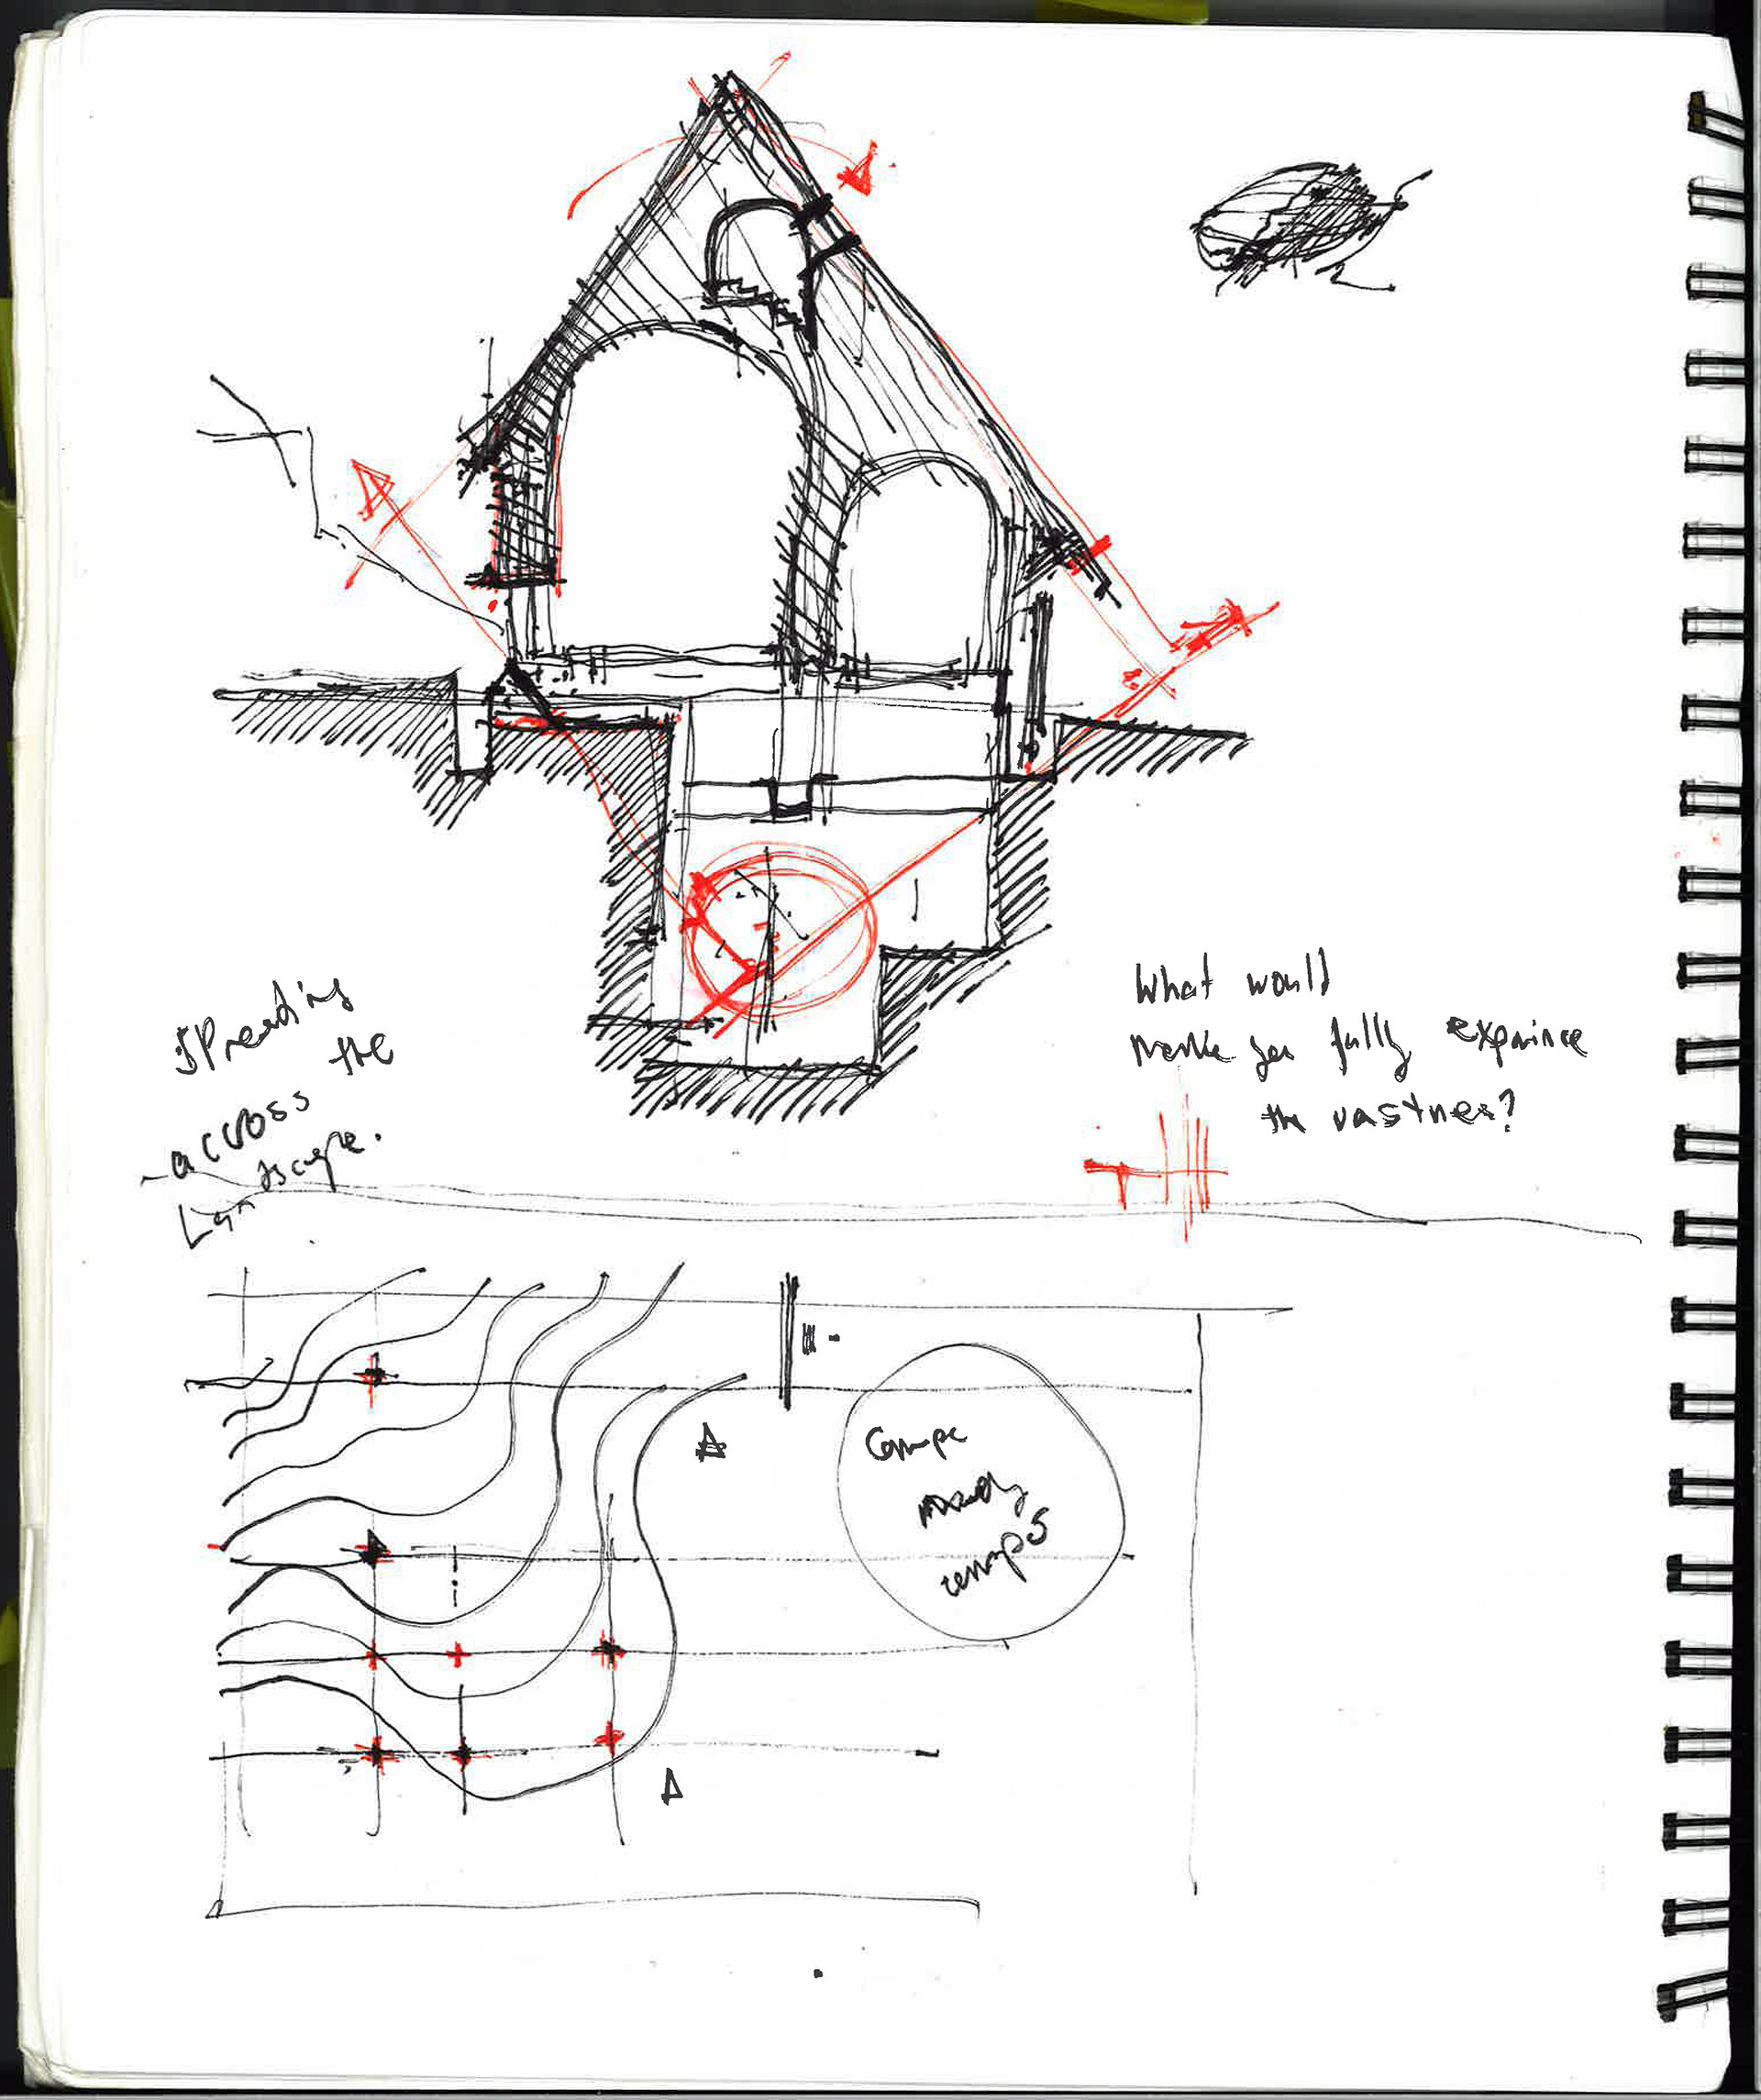 SPreading
the
across
Landscape.
What would
make you fully expirince
the vastnes?